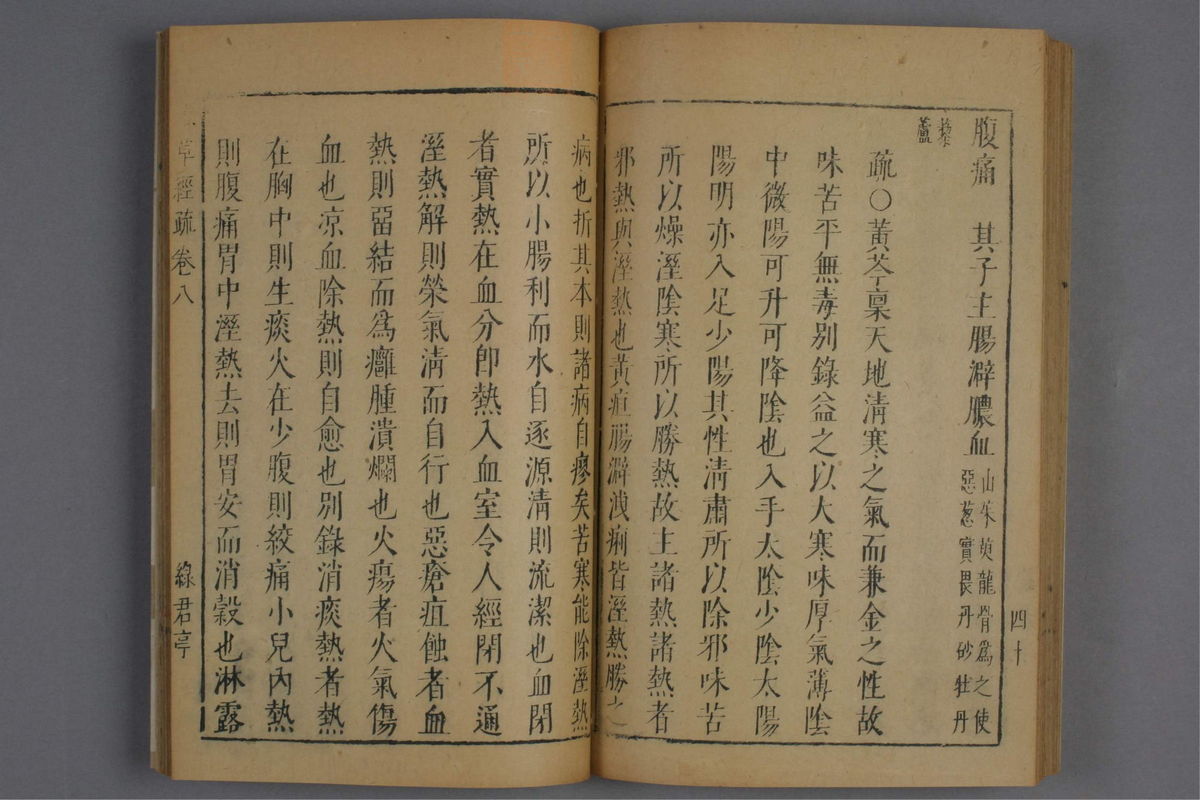 腹痛　其子主腸澼膿血山茱萸龍骨爲之使惡葱實畏丹砂牡丹
藜蘆
疏○黃芩稟天地清寒之氣而兼金之性故
味苦平無毒別錄益之以大寒味厚氣薄陰
中微陽可升可降陰也入手太陰少陰太陽
陽明亦入足少陽其性清肅所以除邪味苦
所以燥溼陰寒所以勝熱故主諸熱諸熱者
邪熱與溼熱也黃疸腸澼洩痢皆溼熱勝之
四十
病也折其本則諸病自瘳矣苦寒能除溼熱
所以小腸利而水自逐源清則流潔也血閉
者實熱在血分卽熱入血室令人經閉不通
溼熱解則榮氣清而自行也惡瘡疽蝕者血
熱則畱結而爲癰腫潰爛也火瘍者火氣傷
血也凉血除熱則自愈也別錄消痰熱者熱
在胸中則生痰火在少腹則絞痛小兒內熱
則腹痛胃中溼熱去則胃安而消穀也淋露
草經疏 卷八　綠君亭